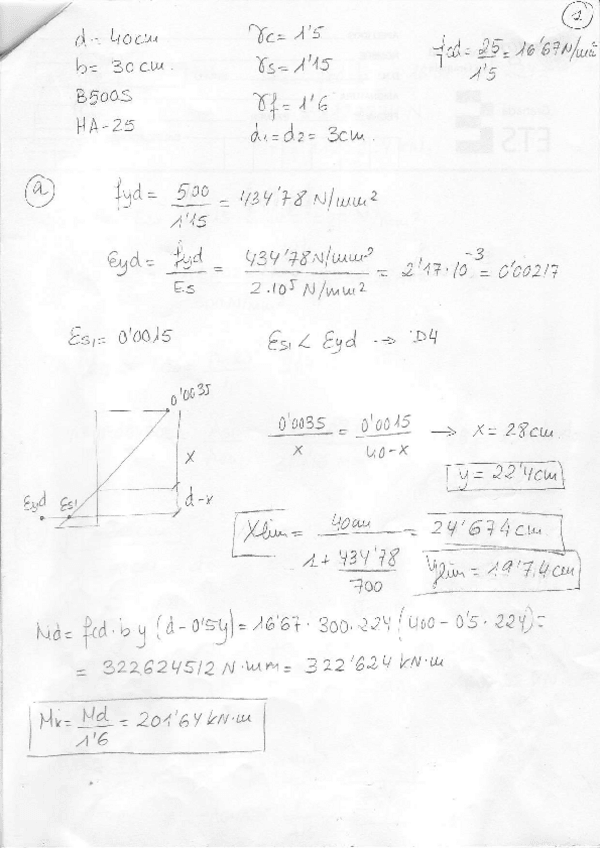 1
d = 40cm γc = 1'5 fcd = 25/1'5 = 16'67 N/mm²
b = 30cm. γs = 1'15
B500S γf = 1'6
HA-25 d1 = d2 = 3cm.
a) fyd = 500/1'15 = 434'78 N/mm²
Eyd = fyd/Es = 434'78 N/mm²/2·10⁵ N/mm² = 2'17·10⁻³ = 0'00217
Es1 = 0'0015 Es1 < Eyd → D4
0'0035
x
d-x
Eyd Es1
0'0035/x = 0'0015/40-x → x = 28cm.
y = 22'4cm
Xlim = 40cm/1+434'78/700 = 24'674cm.
Ylim = 19'74cm
Md = fcd·b y (d-0'5y) = 16'67·300·224 (400-0'5·224) =
= 322624512 N·mm = 322'624 kN·m
Mk = Md/1'6 = 201'64 kN·m